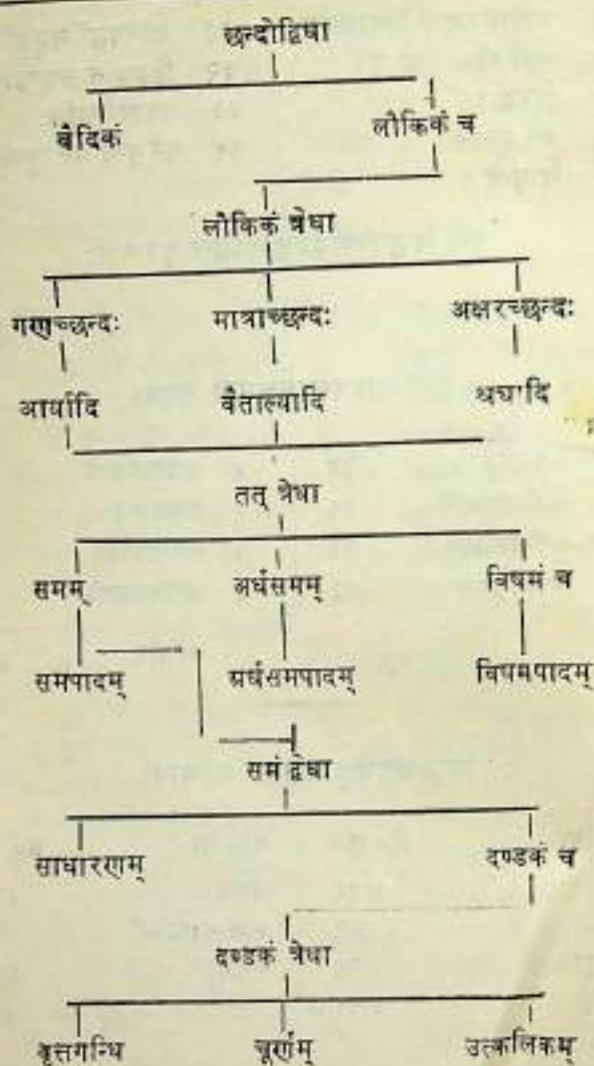 छन्दोद्विधा
वैदिकं लौकिकं च
लौकिकं त्रेधा
गणच्छन्दः मात्राच्छन्दः अक्षरच्छन्दः
आर्यादि वैताल्यादि
तत् त्रेधा
समम् अर्धसमम् विषमं च
समपादम् अर्धसमपादम् विषमपादम्
समं द्वेधा
साधारणम् दण्डकं च
दण्डकं त्रेधा
वृत्तगन्धि चूर्णम् उत्कलिकम्